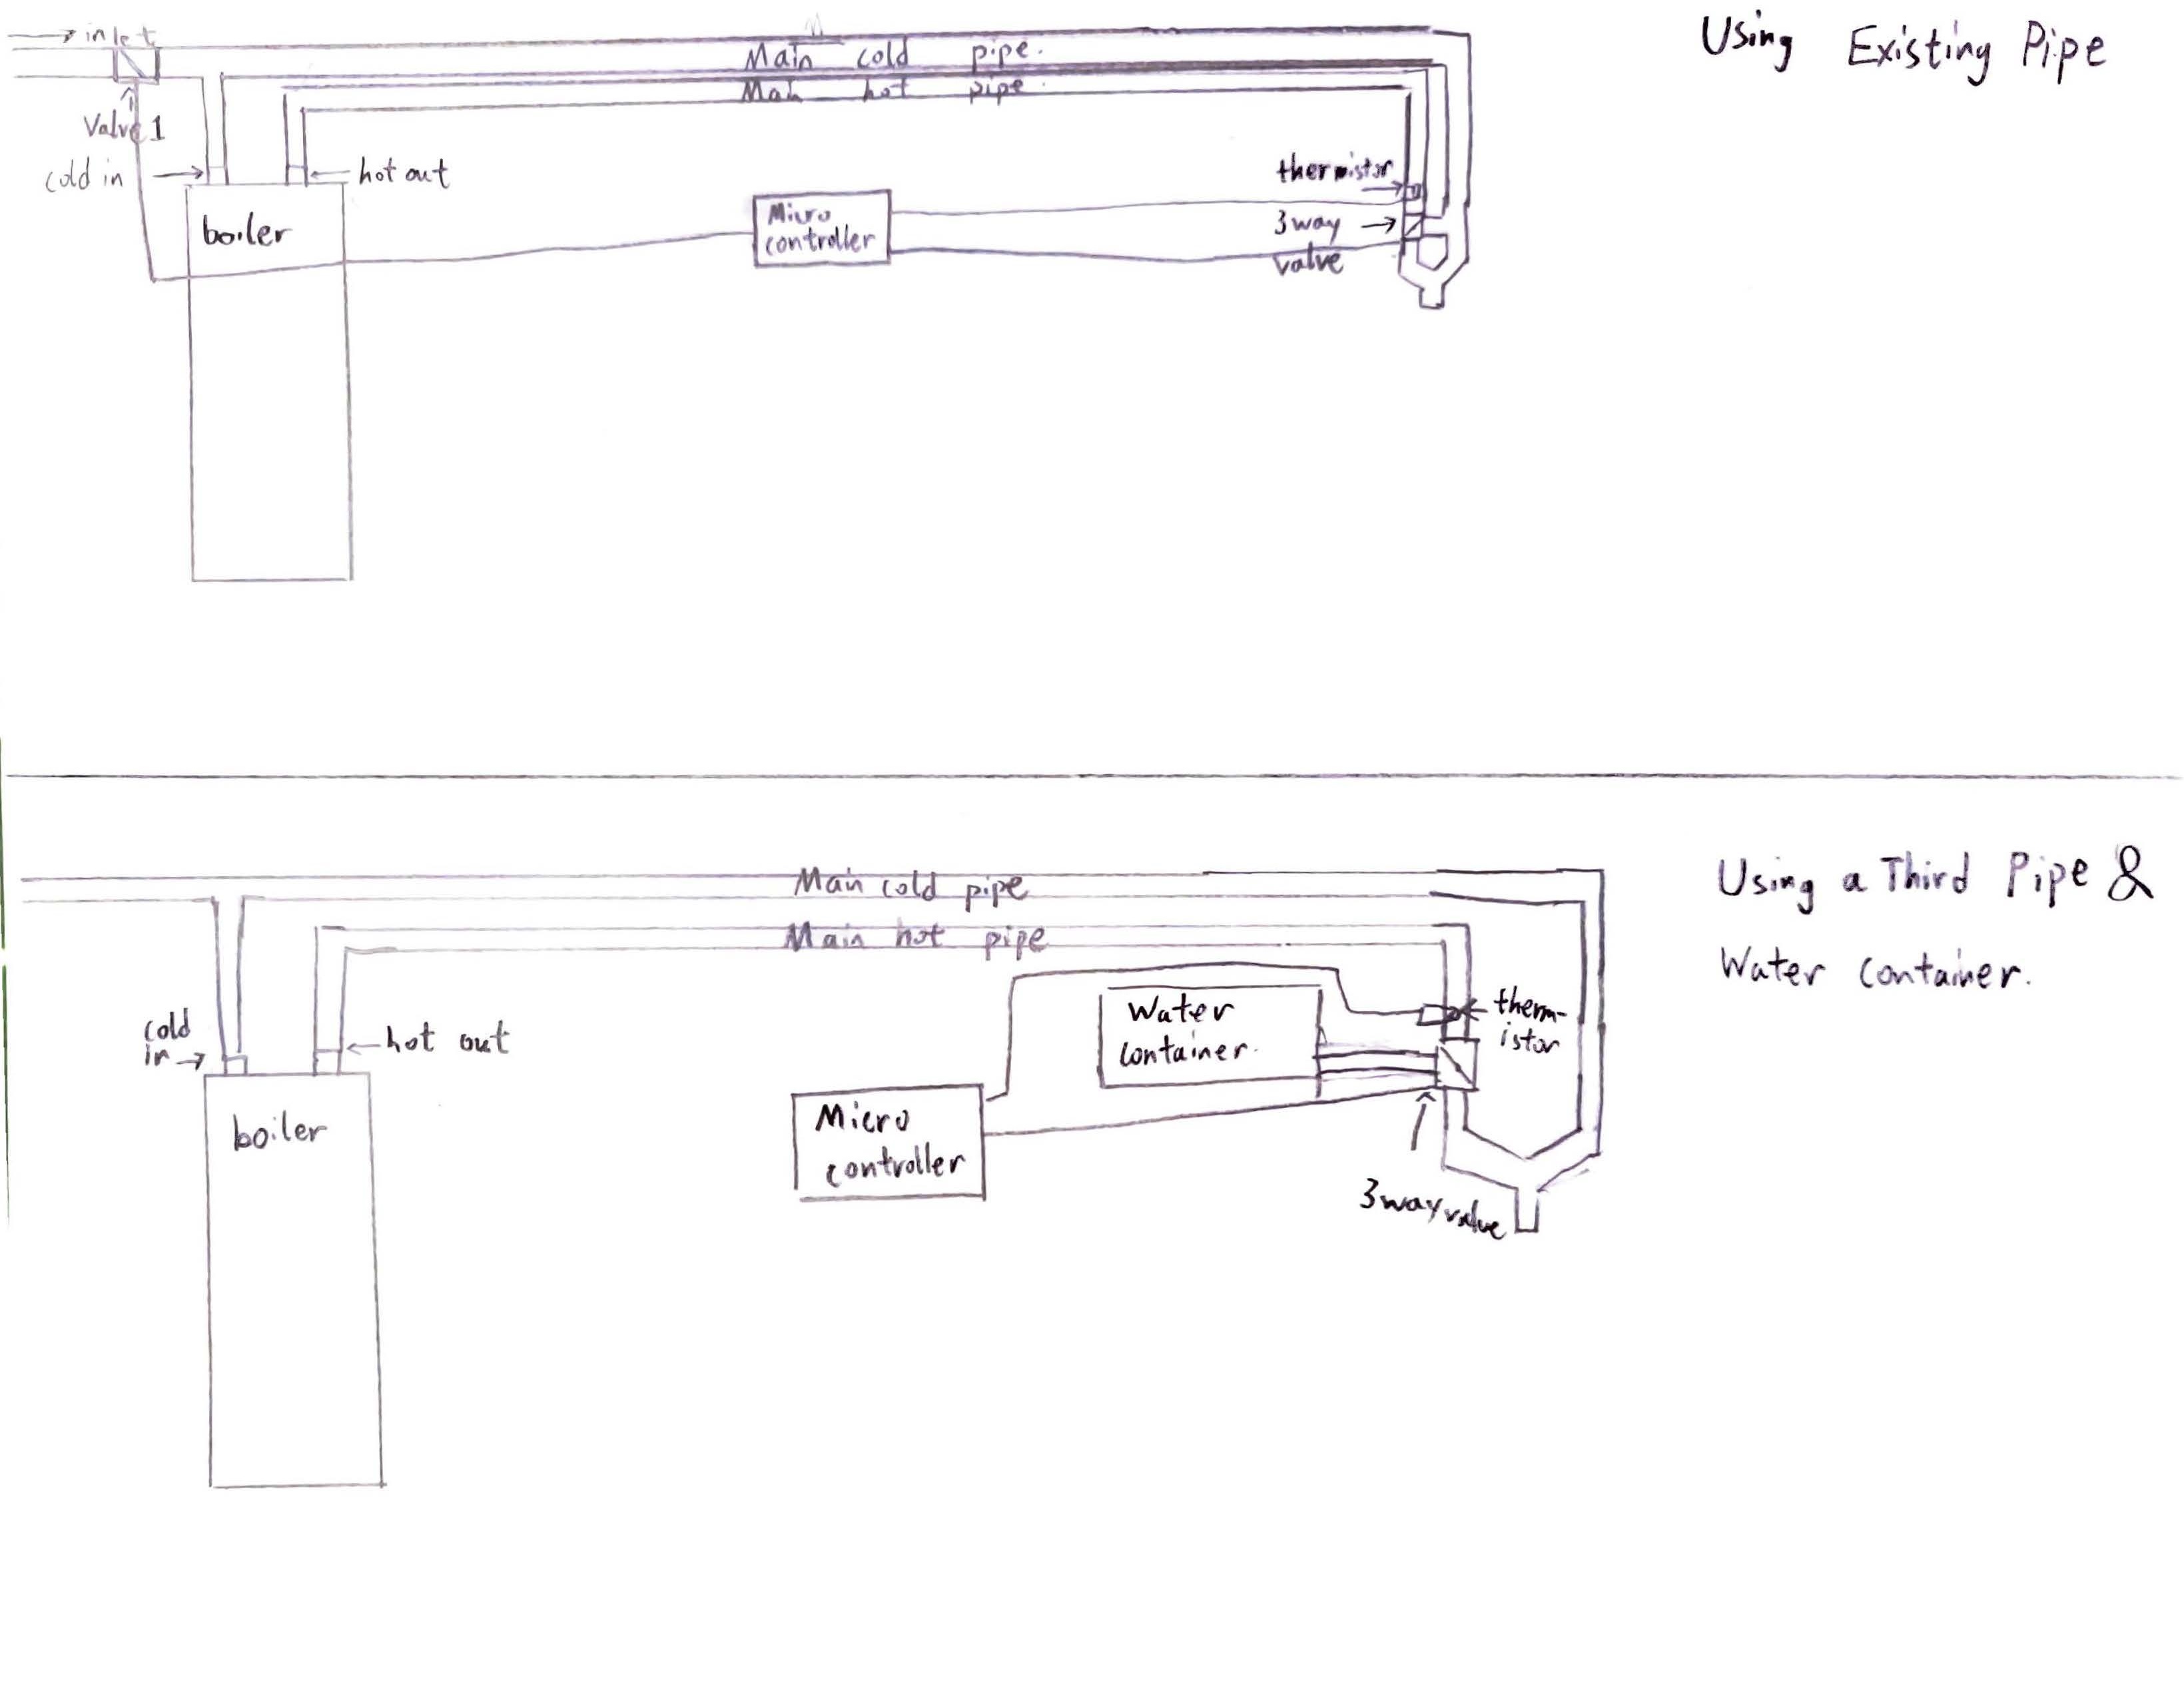 Using Existing Pipe
inlet
Main cold pipe.
Main hot pipe
Valve 1
cold in
hot out
boiler
Micro
controller
thermistor
3 way
valve
Using a Third Pipe &
Water container.
Main cold pipe
Main hot pipe
cold
in
hot out
boiler
Water
container.
therm-
istor
Micro
controller
3 way valve